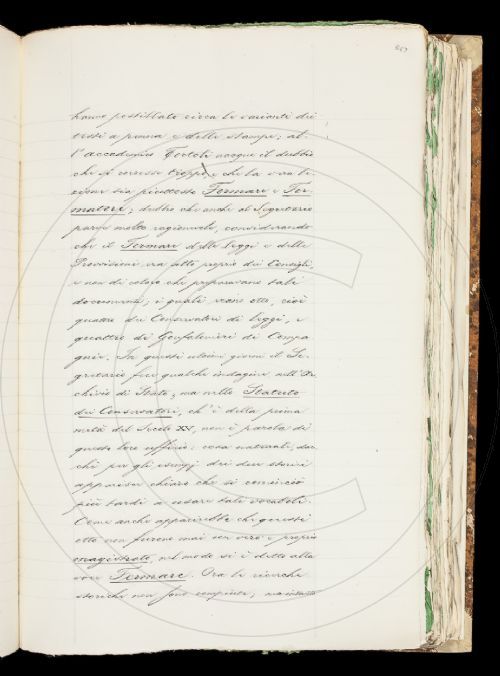 hanno postillato circa le varianti dei
testi a penna e delle stampe; al-
l'accademico Tortoli nacque il dubbio
che si corresse troppo, e che la vera le-
zione sia piuttosto Fermare e Fer-
matori; dubbio che anche al Segretario
parve molto ragionevole, considerando
che il Fermare delle leggi e delle
Provvisioni era atto proprio dei Consigli,
e non di coloro che preparavano tali
documenti; i quali erano otto, cioè
quattro dei Conservatori di leggi, e
quattro di Gonfalonieri di Compa
gnie. In questi ultimi giorni il Se-
gretario fece qualche indagine nell'Ar-
chivio di Stato; ma nello Statuto
dei Conservatori, ch'è della prima
metà del Secolo XV, non è parola di
questo loro ufficio: cosa naturale, dac
chè per gli esempj dei due storici
apparisce chiaro che si cominciò
più tardi a usare tali vocaboli.
Come anche apparirebbe che questi
otto non furono mai un vero e proprio
magistrato, nel modo si è detto alla
voce Fermare. Ora le ricerche
storiche non sono compiute; ma intanto